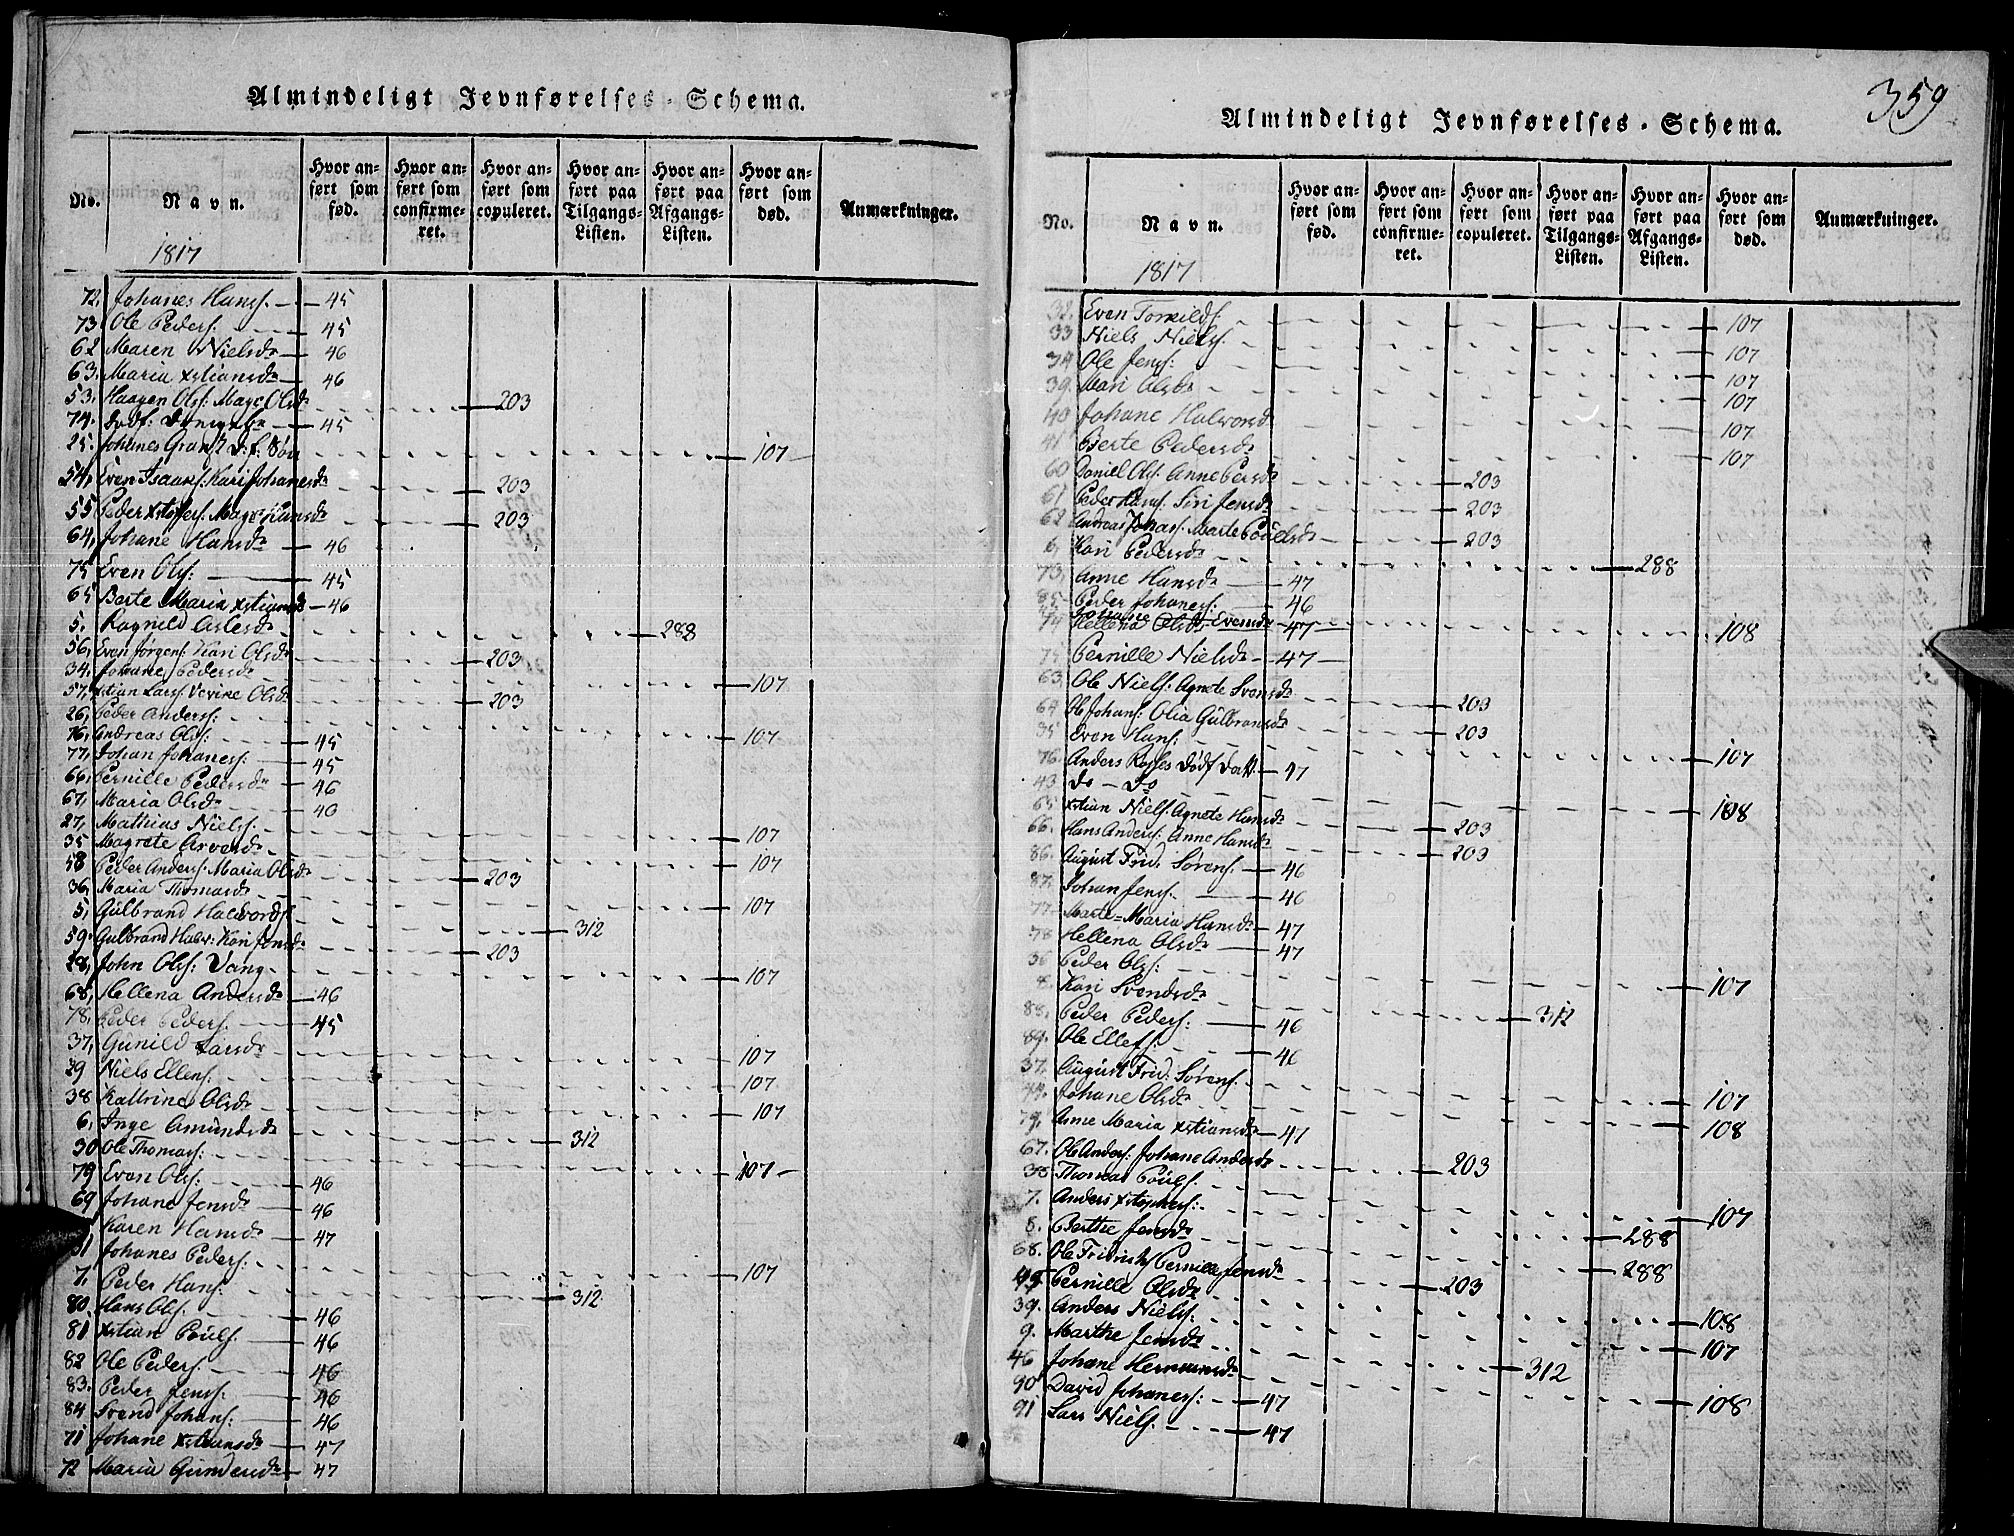 Almindeligt Jevnførelses-Schema.
No. Navn. Hvor anført som fød. Hvor anført som confirmeret. Hvor anført som copuleret. Hvor anført paa Tilgangs-Listen. Hvor anført paa Afgangs-Listen. Hvor anført som død. Anmærkninger.
1817
72, Johanes Hansf. 45
73 Ole Pedersf: 45
62 Maren Nielsdr 46
63. Maria Xstiansdr 46
53, Haagen Olsf: Magr Olsdr 203
74. Dødf: 45
25. Johanes D:f: Søn 107
54, Even Isaaksf: Kari Johanesdr 203
55 Peder Xstofersf: Magr Hansdr 203
64, Johane Hansdr 46
75 Even Olsf: 45
65 Berte Maria Xstiansdr 46
5. Ragnild Aslesdr 288
56, Even Jörgensf: Kari Olsdr 203
34. Johane Pedersdr 107
57, Xstian Larsf: Olsdr 203
26, Peder Andersf: 107
76, Andreas Olsf: 45
77, Johan Johanesf: 45
66, Pernille Pedersdr 46
67, Maria Olsdr 40
27, Mathias Nielsf. 107
35 Magrete Arvesdr 107
58 Peder Andersf: Maria Olsdr 203
36, Maria Thomasdr 107
5, Gülbrand Halvordsf. 312
59. Gulbrand Halv: Kari Jensdr 203
28, John Olsf: Vang 107
68, Hellena Andersdr 46
78, Peder Pedersf. 45
37, Gunild Larsdr 107
29 Niels Ellensf. 107
38 Kattrine Olsdr 107
6, Inge Amundsdr 312
30 Ole Thomasf: 107
79 Even Olsf: 46
69 Johane Jensdr 46
Karen Hansdr 47
31 Johanes Pedersf: 107
7. Peder Hansf: 312
80. Hans Olsf. 46
81 Xstian Poulsf. 46
82 Ole Pedersf. 46
83. Peder Jensf: 46
84 Svend Johansf: 46
71 Johane Xstiansdr 47
72 Maria Gundersdr 47
359
Almindeligt Jevnførelses-Schema.
No. Navn. Hvor anført som fød. Hvor anført som confirmeret. Hvor anført som copuleret. Hvor anført paa Tilgangs-Listen. Hvor anført paa Afgangs-Listen. Hvor anført som død. Anmærkninger.
1817
32. Even Torkildsf. 107
33 Niels Nielsf. 107
34 Ole Jensf: 107
39. Mari Olsdr 107
40 Johane Halvorsd 107
41 Berte Pedersdr 107
60 Daniel Olsf: Anne Persdr 203
61 Peder Hansf. Siri Jensdr 203
62 Andreas Johansf. Marte Poulsdr 203
6, Kari Pedersdr 288
73, Anne Hansdr 47
85. Peder Johanesf: 46
74 Hellena Olsdr 47
Johanne Evensdr 108
75 Pernille Nielsdr 47
63. Ole Nielsf: Agnete Svensdr 203
64 Ole Johansf: Olia Gulbransdr 203
35 Even Hansf: 107
76. Anders Dødf Datt. 47
43 Do - Do 108
65 Xstian Nielsf. Agnete Hansdr 203
66. Hans Andersf: Anne Hansdr 203
86. August Frid. Sørensf. 46
87. Johan Jensf. 46
77. Marte=Maria Hansdr 47
78 Hellena Olsdr 47
36 Peder Olsf: 107
8. Kari Svendsdr 312
88. Peder Pedersf: 46
89. Ole Ellefs. 46
37. August Frid. Sørensf. 107
Johane Olsdr 108
79. Anne Maria Xstiansdr 47
67. Ole Andersf: Johane Andersdr 203
38 Thomas Poulsf. 107
7. Anders Xstophersf: 288
8. Berthe Jensdr 288
68. Ole Fridrichsf Pernille Jensdr 203
45 Pernille Olsdr 108
39. Anders Nielsf. 107
9. Marthe Jensdr 312
46 Johane Hermansdr 108
90 David Johanesf: 47
91 Lars Nielsf. 47